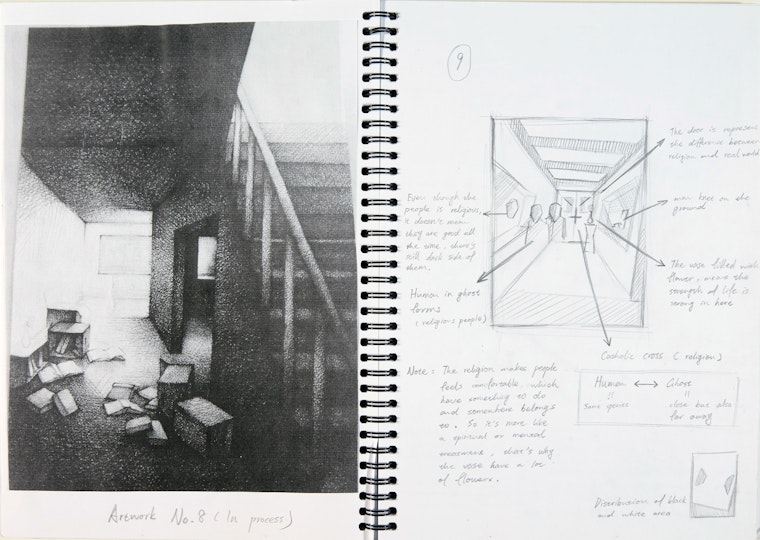 Artwork No.8 (In process)
9
The door is represent
the difference between
religion and real world
Even though the
people is religious,
it doesn't mean
they are good all
the time. there's
still dark side of
them.
man knee on the
ground
The vase filled with
flower, means the
strength of life is
strong in here
Human in ghost
forms
(religious people)
Catholic cross (religion)
Note: The religion makes people
feels comfortable, which
have something to do
and somewhere belongs
to. So it's more like
a spiritual or mental
, that's why
the vase have a lot
of flowers.
Human ↔ Ghost
Same species
close but also
far away
Distribution of black
and white area